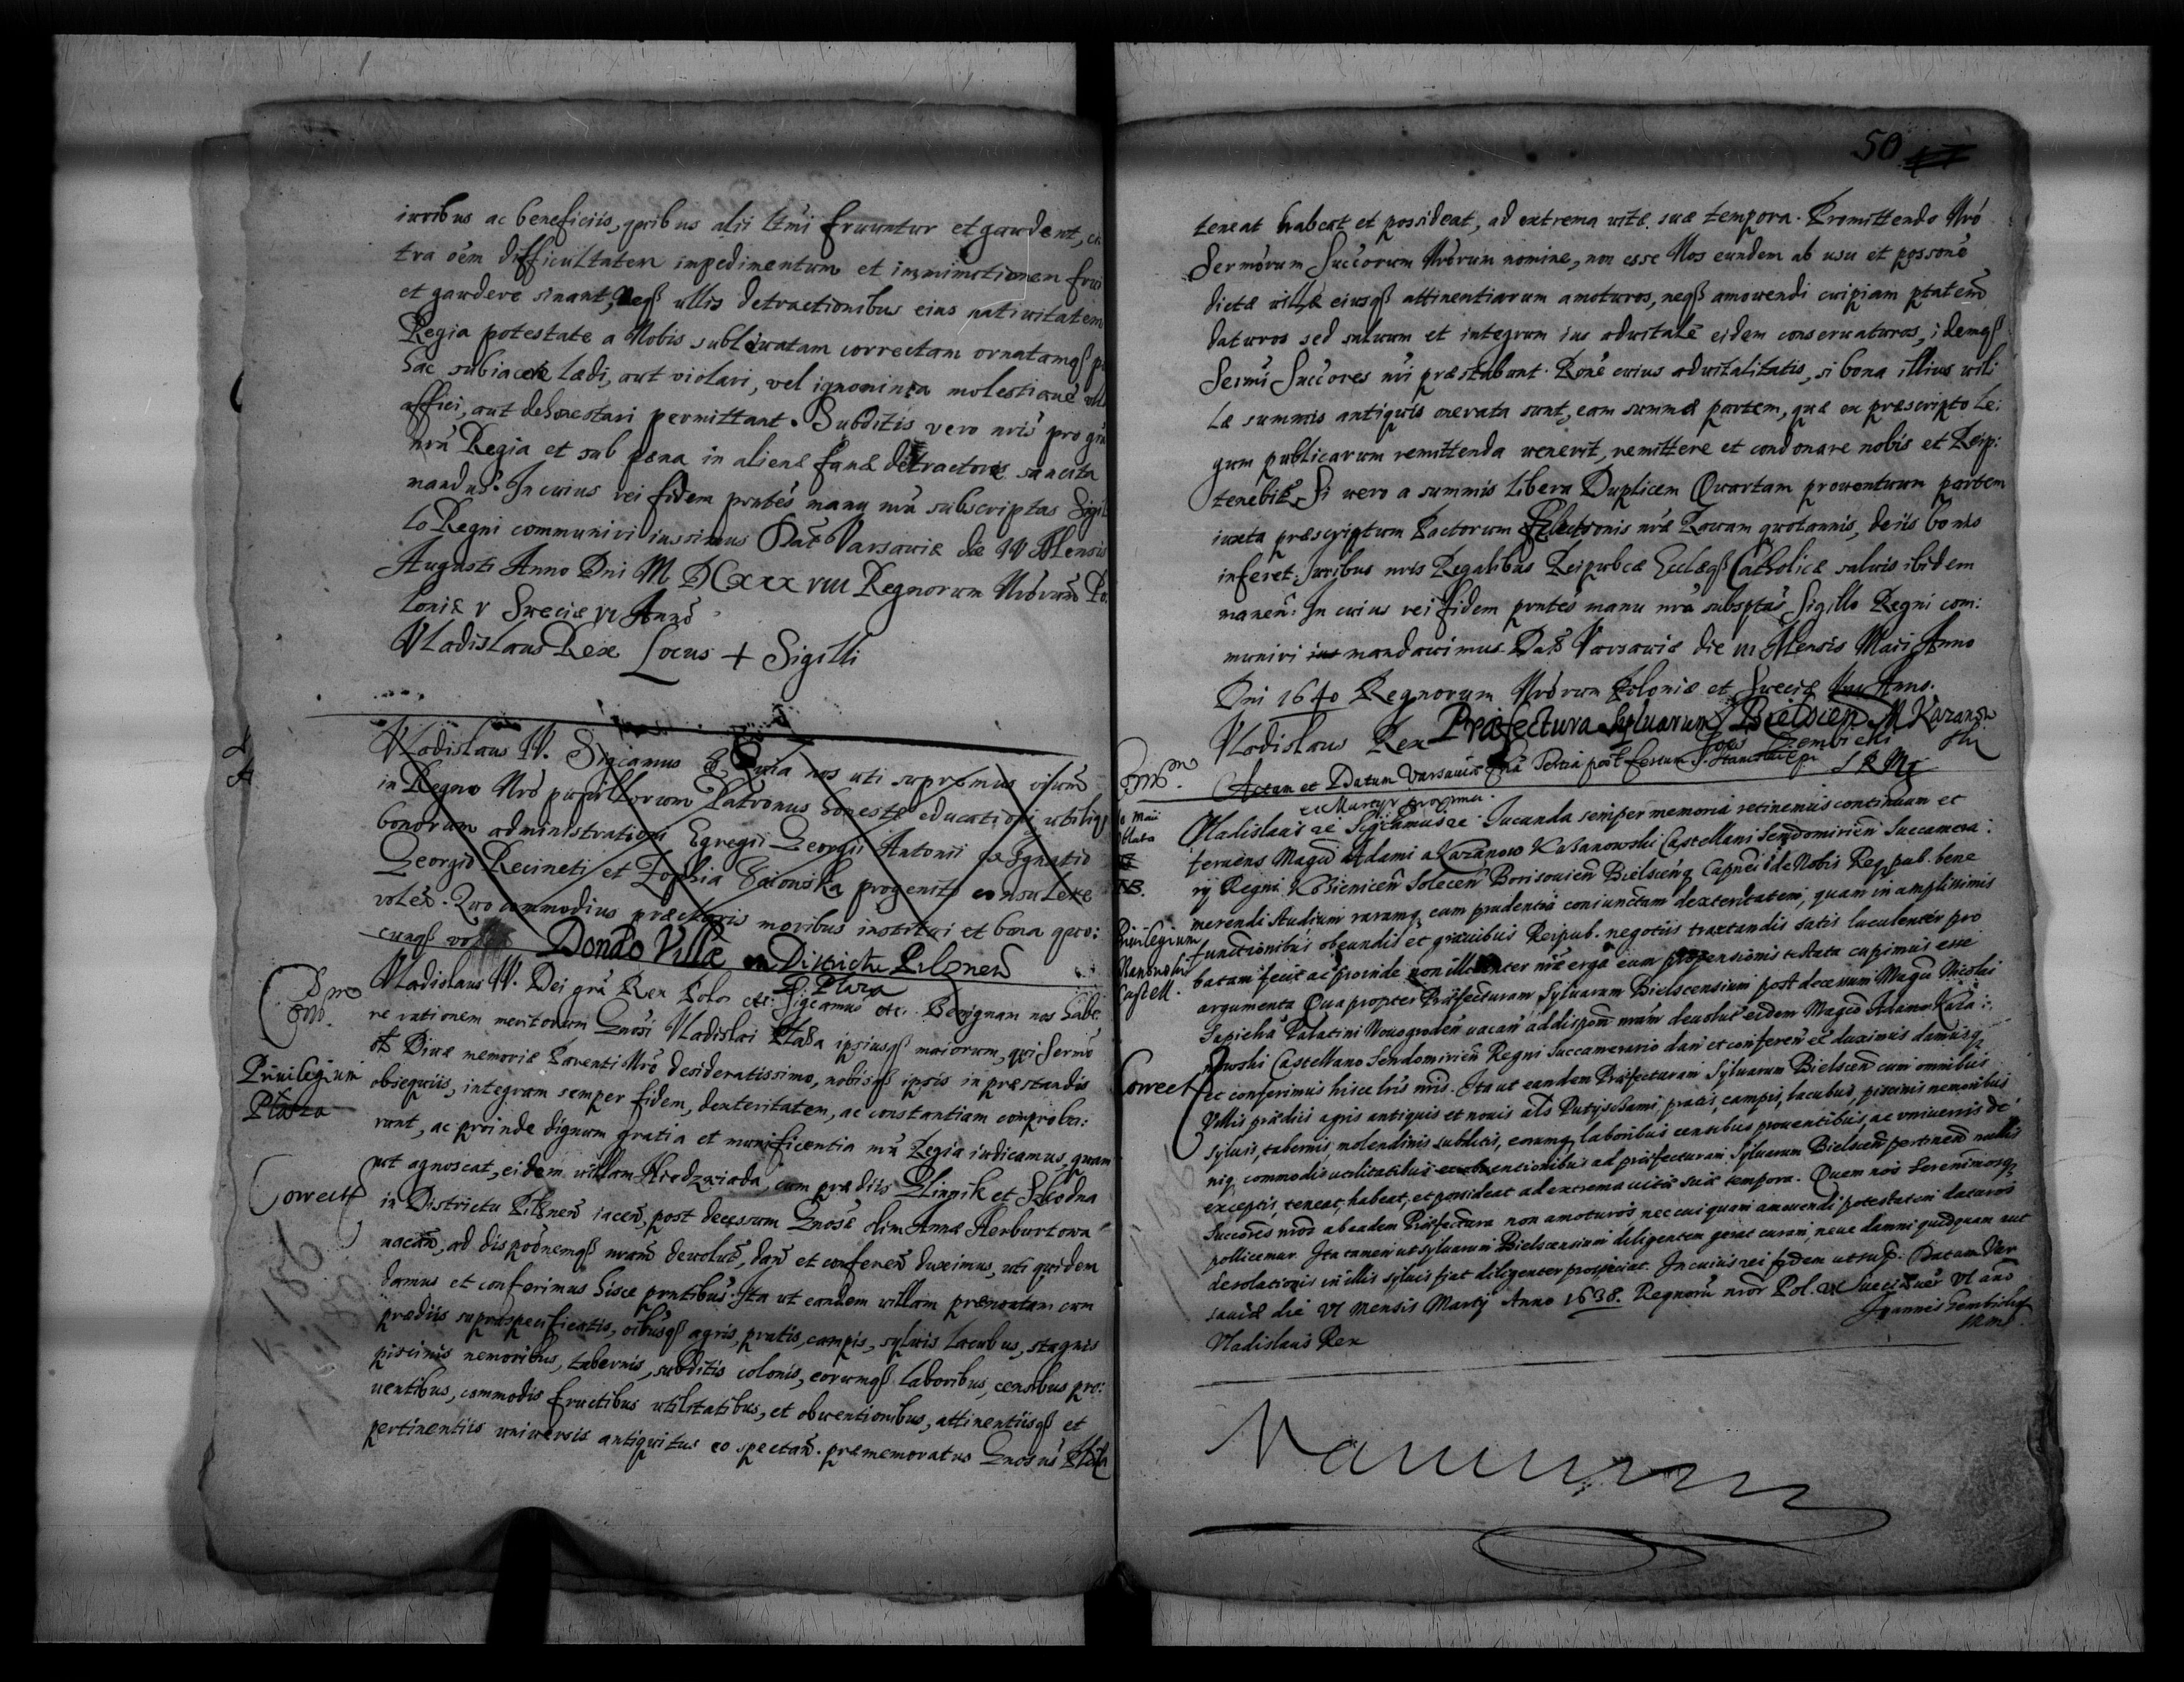 iuribus ac beneficiis, quibus alii ltmi fruuntur et gaudent, ci
tra oem difficultatem impedimentum et imminutionem frui
et gaudere sinant, neqз ullis detractionibus eius nativitatem
Regia potestate a Nobis sublevatam correctam ornatamqз
hac subiacere laedi, aut violari, vel ignominia molestiave
affici, aut dehonestari permittant. Subditis vero nris pro gra
nra Regia et sub paena in alienae famae detractores sancita
mandus. In cuius rei fidem pntes manu nra subscriptas Sigil
lo Regni communiri iussimus Dat Varsaviae die IV Mensis
Augusti Anno Dni M DCxxx VIII Regnorum Nrorum Po
loniae V Sveciae VI Anno
Vladislaus Rex Locus + Sigilli
Vladislaus IV. Sigcamus Quia nos uti supremus
in Regno Nro pupillorum Patronus honestae educationi utiliqз
bonorum administrationi Egregii Georgii Antonii Ignatio
Georgio Recineti et Zophia progenito consulere
volen. Quo commodius praeclaris moribus institui et bona quae:
cunqз
Donatio Villae in Districtu Pilznen
D. Plaza
Vladislaus IV. Dei gra Rex Polo etc. Sigcamus etc. Benignam nos habe
re rationem meritorum Gnosi Vladislai Plaza ipsiusqз maiorum, qui Sermo
Divae memoriae Parenti Nro desideratissimo, nobisqз ipsis in praestandis
Privilegium
Plazza
obsequiis, integram semper fidem, dexteritatem, ac constantiam comproba:
runt, ac proinde dignum gratia et munificentia nra Regia iudicamus, quam
Correct
ut agnoscat, eidem villam Niedzwiada, cum praediis Glinnik et Szkodna
in Districtu Pilznen iacen, post decessum Gnosae olim Annae Herburtowa
vacan, ad disponemqз nram devolut, dan et conferen duximus, uti quidem
damus et conferimus hisce pntibus. Ita ut eandem villam praenotatam cum
praediis supraspecificatis, oibusqз agris, pratis, campis, sylvis lacubus, stagnis
piscinis nemoribus, tabernis, subditis colonis, eorumqз laboribus, censibus pro:
ventibus, commodis fructibus utilitatibus, et obventionibus, attinentiisqз et
pertinentiis universis antiquitus eo spectan. praememoratus Gnosus Plaza
50
teneat habeat et possideat, ad extrema vitae suae tempora. Promittendo Nro
Sermorum Succorum Nrorum nomine, non esse Nos eundem ab usu et possone
dictae villae eiusqз attinentiarum amoturos, neqз amovendi cuipiam ptatem
daturos sed salvum et integrum ius advitale eidem conservaturos, idemqз
Sermi Succores nri praestabunt. Rone cuius advitalitatis, si bona illius vil:
lae summis antiquis onerata sunt, eam summae partem, quae ex praescripto Le:
gum publicarum remittenda venerit, remittere et condonare nobis et Reip:
tenebit. Si vero a summis libera Duplicem Quartam proventuum partem
iuxta praescriptum Pactorum Electionis nrae Ravam quotannis, de iis bonis
inferet. Iuribus nris Regalibus Reipublcae Ecclaeqз Catholicae salvis ibidem
manen. In cuius rei fidem pntes manu nra subsptas Sigillo Regni com:
muniri mandavimus. Dat Varsaviae die III Mensis Maii Anno
Dni 1640 Regnorum Nrorum Poloniae et Sveciae Anno.
Vladislaus Rex Praefectura Sylvarum Bielscen M Kazanow
Joes Gembicki
S R M
Actam et Datum Varsaviae Fria Tertia post festum S. Stanislai Epi
et Martyr proxima.
Maii
oblata
Vladislaus etc Sigcamus etc. Jucunda semper memoria retinemus continuum et
fervens Magci Adami a Kazanow Kazanowski Castellani Sendomirien Succamera:
rij Regni Kozienicen Solecen Borisovien Bielscenq Capnei de Nobis Reqpub. bene
merendi studium raramq cum prudentia coniunctam dexteritatem, quam in amplissimis
Privilegium
Kazanowski
Castell.
functionibus obeundis et gravibus Reipub. negotiis tractandis satis luculenter pro
batam fecit ac proinde non illubenter nrae erga eum propensionis testata cupimus esse
argumenta Quapropter Praefecturam Sylvarum Bielscensium post decessum Magci Nicolai
Sapieha Palatini Novogroden vacan ad dispon nram devolut eidem Magco Adamo Kaza:
Correct
nowski Castellano Sendomirien Regni Succamerario dan et conferen et duximus damusq
et conferimus hisce lris nris. Ita ut eandem Praefecturam Sylvarum Bielscen cum omnibus
Villis praediis agris antiquis et novis als Rutyschami, pratis, campis, lacubus, piscinis nemoribus
sylvis, tabernis, molendinis subditis, eorumq laboribus censibus proventibus, ac universis de
niq commodis utilitatibus obventionibus ad praefecturam Sylvarum Bielscen pertinen nullis
exceptis, teneat, habeat, et possideat ad extrema vitae suae tempora. Quem nos Serenimosq
Succores nros ab eadem Praefectura non amoturos nec cuiquam amovendi potestatem daturos
pollicemur. Ita tamen ut sylvarum Bielscensium diligentem gerat curam, neve damni quidquam aut
desolationis in illis sylvis fiat diligenter prospiciat. In cuius rei fidem ut sup. Datum Var
saviae die VI Mensis Martij Anno 1638. Regnoru nror Pol. VI Sveciae ver VI ano
Vladislaus Rex
Joannes Gembicki